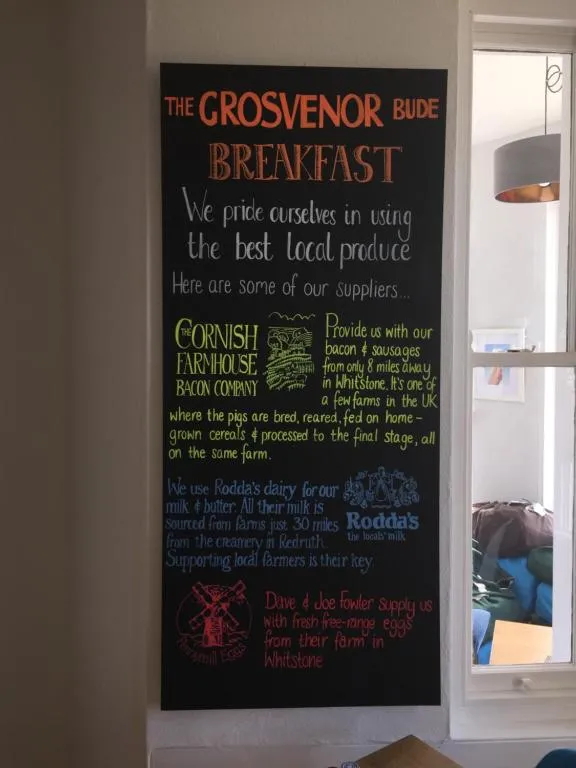 THE GROSVENOR BUDE
BREAKFAST
We pride ourselves in using
the best local produce
Here are some of our suppliers...
THE CORNISH
FARMHOUSE
BACON COMPANY
Provide us with our
bacon & sausages
from only 8 miles away
in Whitstone. It's one of
a few farms in the UK
where the pigs are bred, reared, fed on home-
grown cereals & processed to the final stage, all
on the same farm.
We use Rodda's dairy for our
milk & butter. All their milk is
sourced from farms just 30 miles
from the creamery in Redruth.
Supporting local farmers is their key.
Rodda's
the locals' milk
Dave & Joe Fowler supply us
with fresh free-range eggs
from their farm in
Whitstone
Eggs